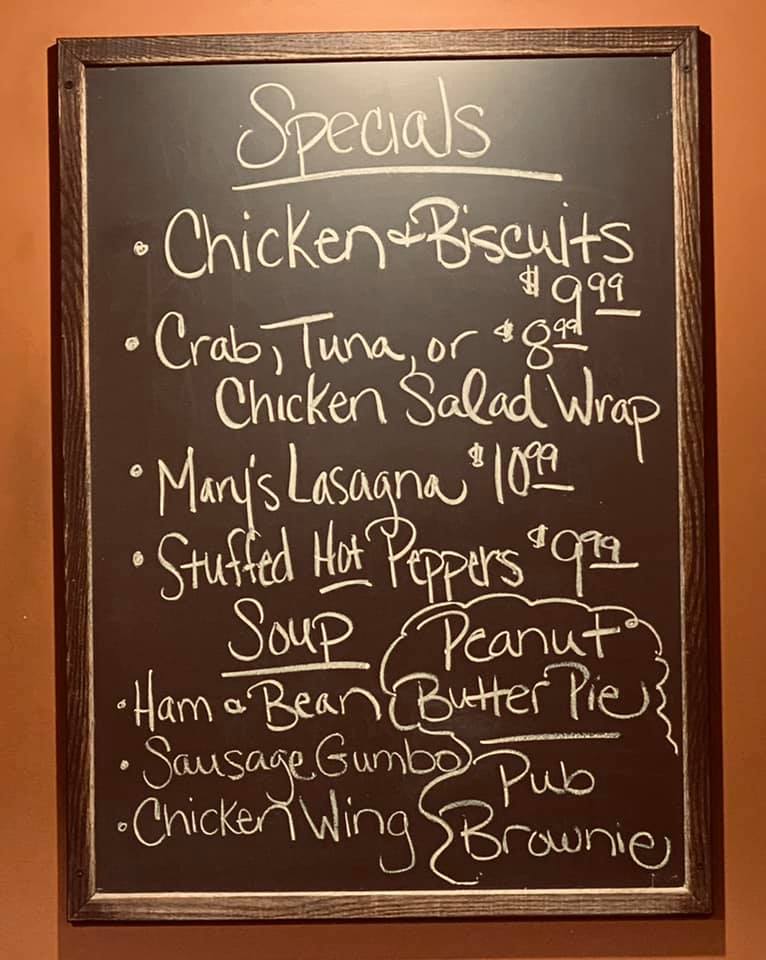 Specials
• Chicken & Biscuits
$9.99
• Crab, Tuna, or $8.99
Chicken Salad Wrap
• Mary's Lasagna $10.99
• Stuffed Hot Peppers $9.99
Soup
• Ham & Bean
• Sausage Gumbo
• Chicken Wing
Peanut
Butter Pie
Pub
Brownie